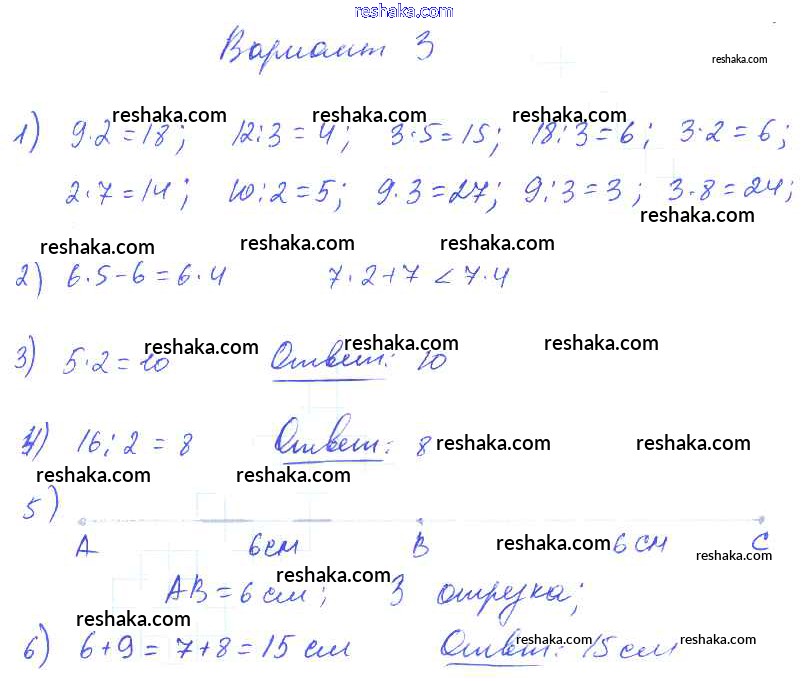 reshaka.com
Вариант 3
reshaka.com
reshaka.com reshaka.com reshaka.com
1) 9·2=18; 12:3=4; 3·5=15; 18:3=6; 3·2=6;
2·7=14; 10:2=5; 9·3=27; 9:3=3; 3·8=24;
reshaka.com
reshaka.com reshaka.com reshaka.com
2) 6·5-6=6·4 7·2+7<7·4
reshaka.com reshaka.com reshaka.com
3) 5·2=10 Ответ: 10
4) 16:2=8 Ответ: 8 reshaka.com reshaka.com
reshaka.com reshaka.com
5)
A 6см B reshaka.com 6 см C
reshaka.com
reshaka.com
AB=6см; 3 отрезка;
reshaka.com
6) 6+9=7+8=15 см Ответ: 15 см
reshaka.com reshaka.com reshaka.com